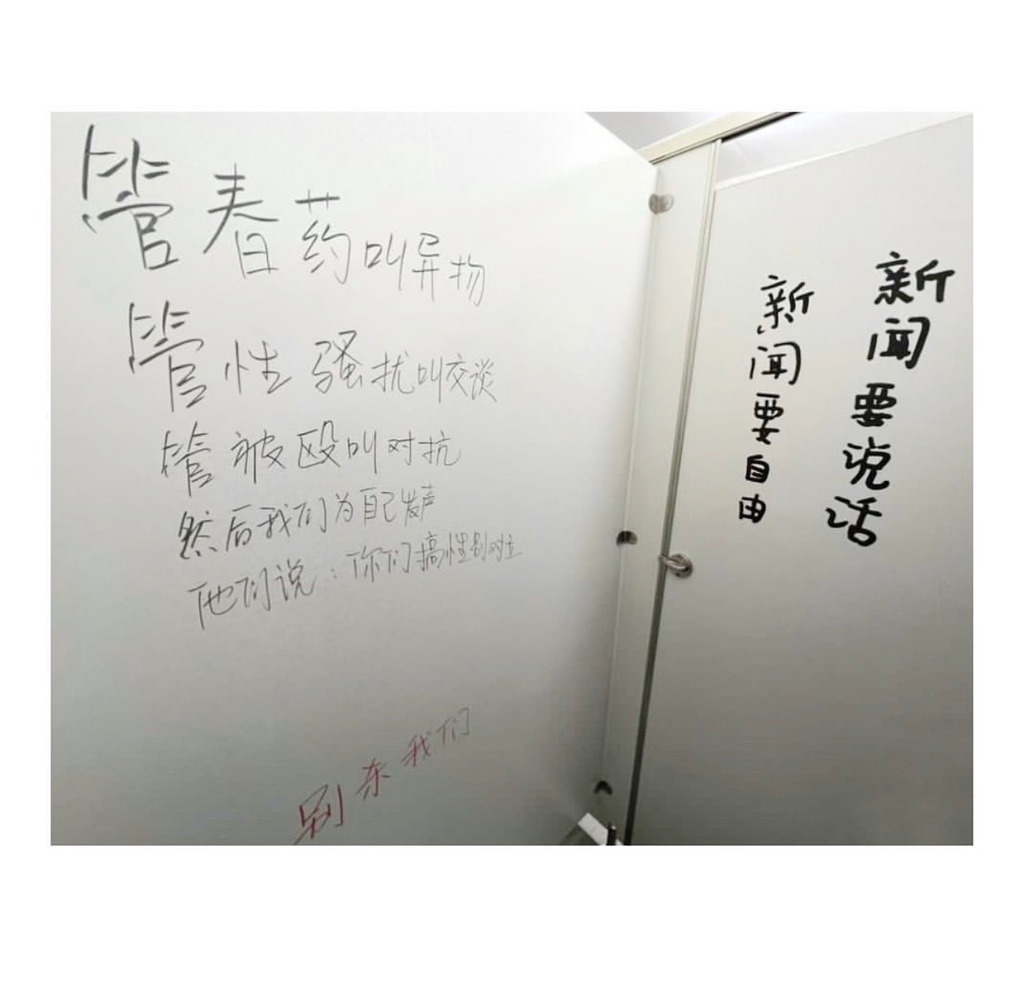 管春药叫异物
管性骚扰叫交谈
管被殴叫对抗
然后我们为自己发声
他们说：你们搞性别对立
别东我们
新闻要说话
新闻要自由